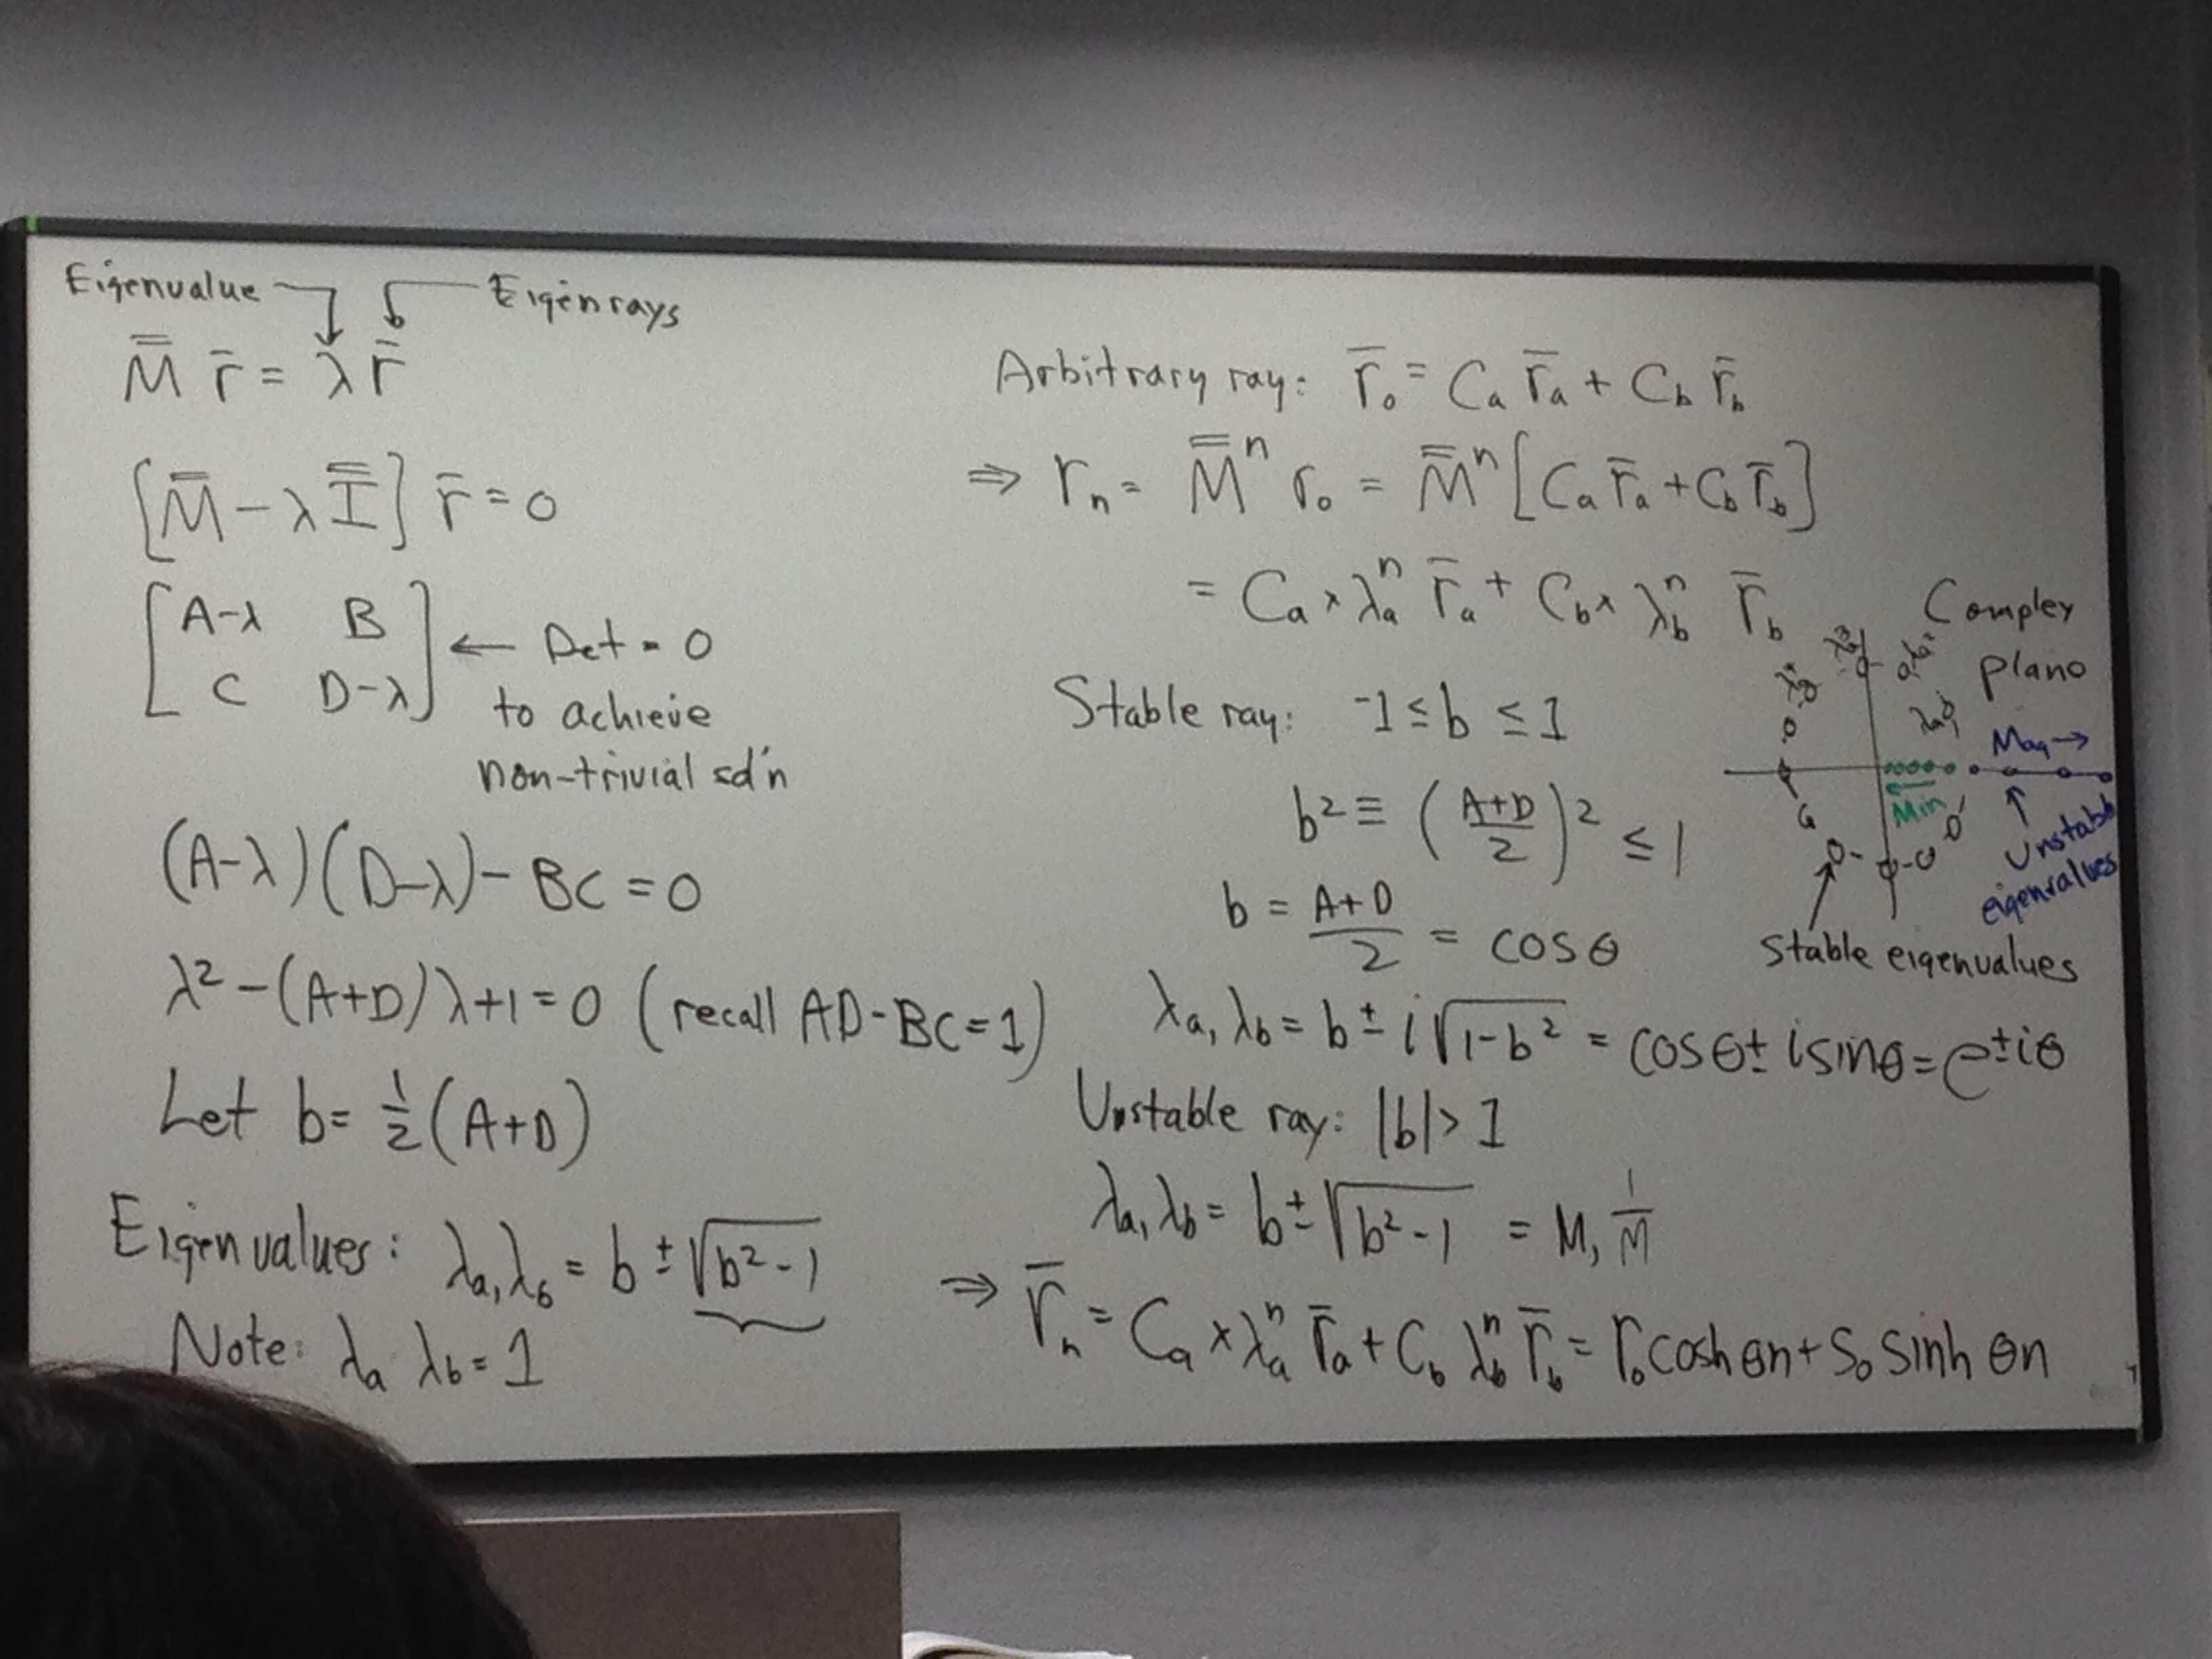 Eigenvalue Eigenrays
M̿ r̄ = λ r̄
[M̿ - λ I̿] r̄ = 0
[A-λ B
C D-λ] ← Det = 0
to achieve
non-trivial sol'n
(A-λ)(D-λ) - BC = 0
λ² - (A+D)λ + 1 = 0 (recall AD-BC=1)
Let b = ½(A+D)
Eigenvalues: λa, λb = b ± √(b²-1)
Note: λa λb = 1
Arbitrary ray: r̄₀ = Ca r̄a + Cb r̄b
⇒ rn = M̿ⁿ r₀ = M̿ⁿ[Ca r̄a + Cb r̄b]
= Ca × λaⁿ r̄a + Cb × λbⁿ r̄b
Stable ray: -1 ≤ b ≤ 1
b² ≡ ((A+D)/2)² ≤ 1
b = (A+D)/2 = cosθ
λa, λb = b ± i√(1-b²) = cosθ ± i sinθ = e^±iθ
Unstable ray: |b| > 1
λa, λb = b ± √(b²-1) = M, 1/M
⇒ r̄n = Ca × λaⁿ r̄a + Cb λbⁿ r̄b = r₀ cosh θn + s₀ sinh θn
Complex
plane
Mag →
Min
Unstable
eigenvalues
Stable eigenvalues